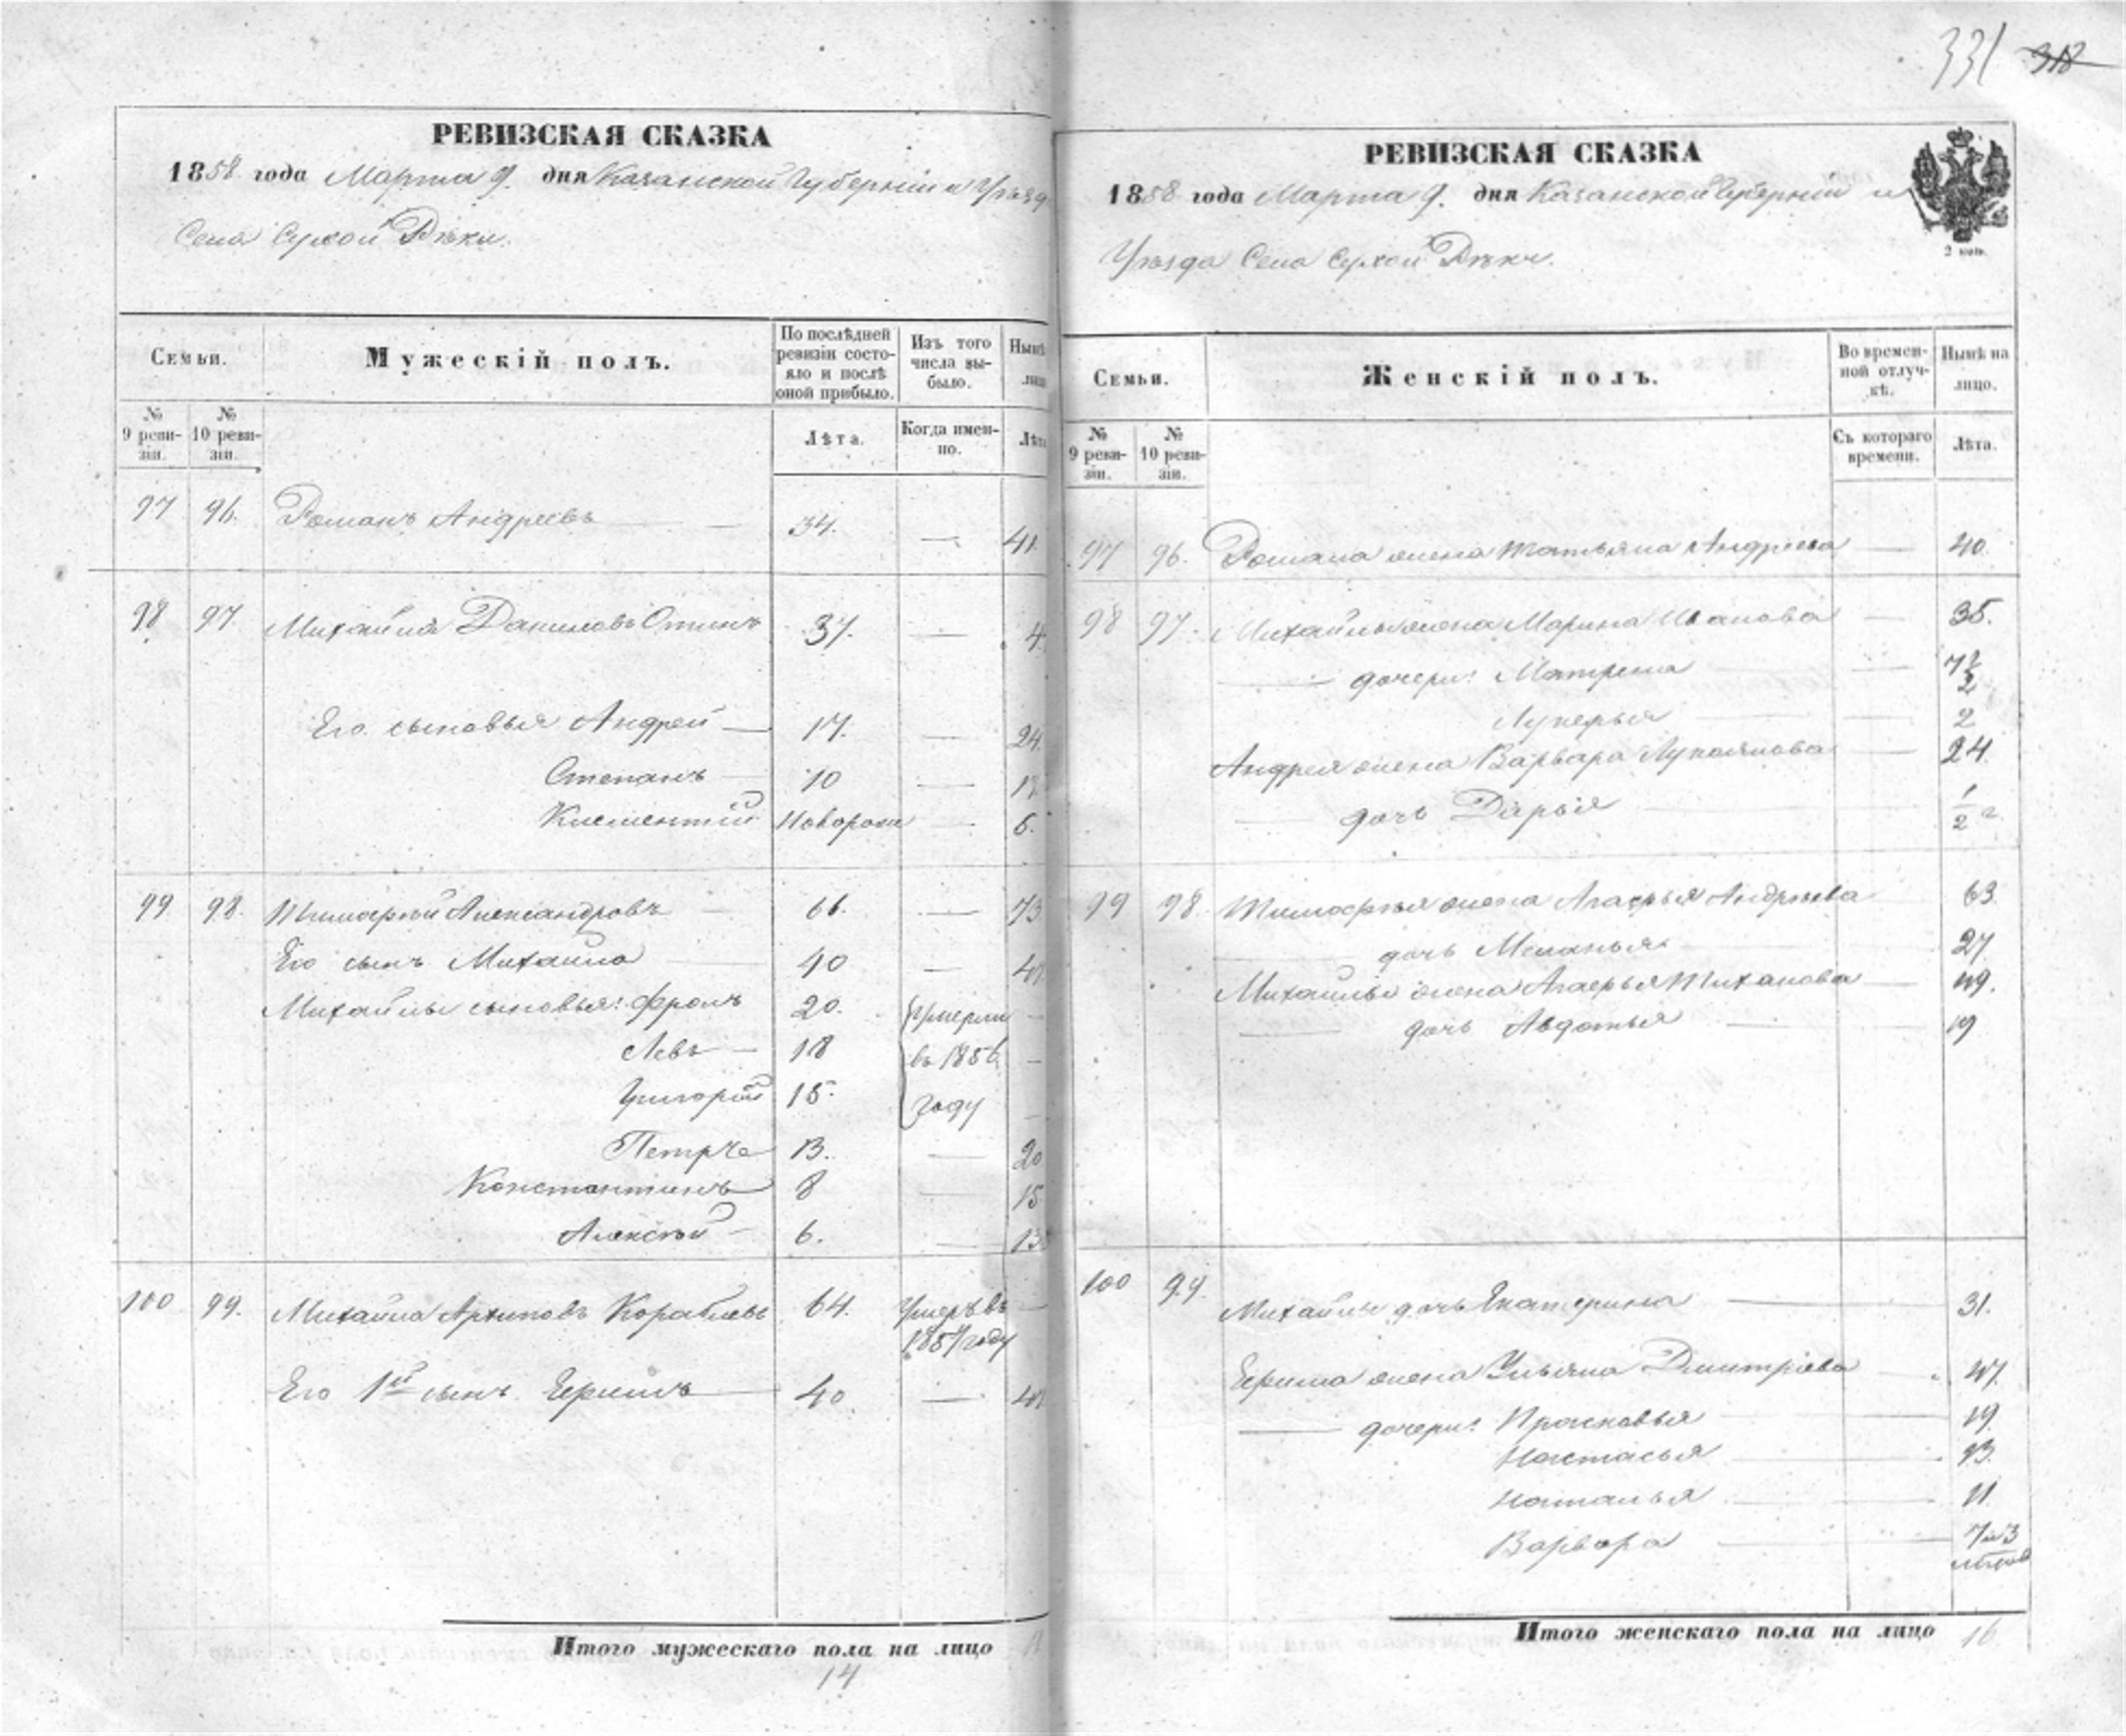 331 318
РЕВИЗСКАЯ СКАЗКА
1858 года Марта 9. дня Казанской Губерніи и Уѣзд
Села Сухой Рѣки.
Семьи.
Мужескій полъ.
По послѣдней ревизіи состояло и послѣ оной прибыло.
Изъ того числа выбыло.
Нынѣ
лицо
№ 9 ревизіи.
№ 10 ревизіи.
Лѣта.
Когда именно.
Лѣта
97 96. Романъ Андреевъ 34. — 41.
98 97. Михайла Даниловъ 37. — 4
Его сыновья Андрей 17. — 24.
Степанъ 10 — 17.
Климентій Новорож —
99 98. Тимофей Александровъ 66. — 73
Его сынъ Михайла 40 — 47
Михайлы сыновья: Фролъ 20. Умерли —
Левъ 18 въ 1856 —
Григорій 15. году —
Петръ 13. — 20
Константинъ 8 — 15
Алексѣй 6. — 13
100 99. Михайла Архиповъ Кораблевъ 64. Умеръ въ —
1857 году
Его 1й сынъ Ефимъ 40. — 47
Итого мужескаго пола на лицо
14
РЕВИЗСКАЯ СКАЗКА
1858 года Марта 9. дня Казанской Губерніи и
Уѣзда Села Сухой Рѣки.
2 коп.
Семьи.
Женскій полъ.
Во временной отлучкѣ.
Нынѣ на лицо.
№ 9 ревизіи.
№ 10 ревизіи.
Съ котораго времени.
Лѣта.
97 96. Романа жена Татьяна Андреева — 40.
98 97. Михайлы жена Марина Иванова — 35.
— дочери: Матрена — 7½
Лукерья — 2
Андрея жена Варвара Лукоянова — 24.
— дочь Дарья — ½ г.
99 98. Тимофея жена Агафья Андреева 63
— дочь Меланья 27.
Михайлы жена Агафья Тиханова — 49.
— дочь Авдотья — 19
100 99. Михайлы дочь Екатерина — 31.
Ефима жена Ульяна Дмитріева 47.
— дочери: Прасковья — 19.
Настасья — 13.
Наталья — 11
Варвара — 7 и 3
Итого женскаго пола на лицо 16